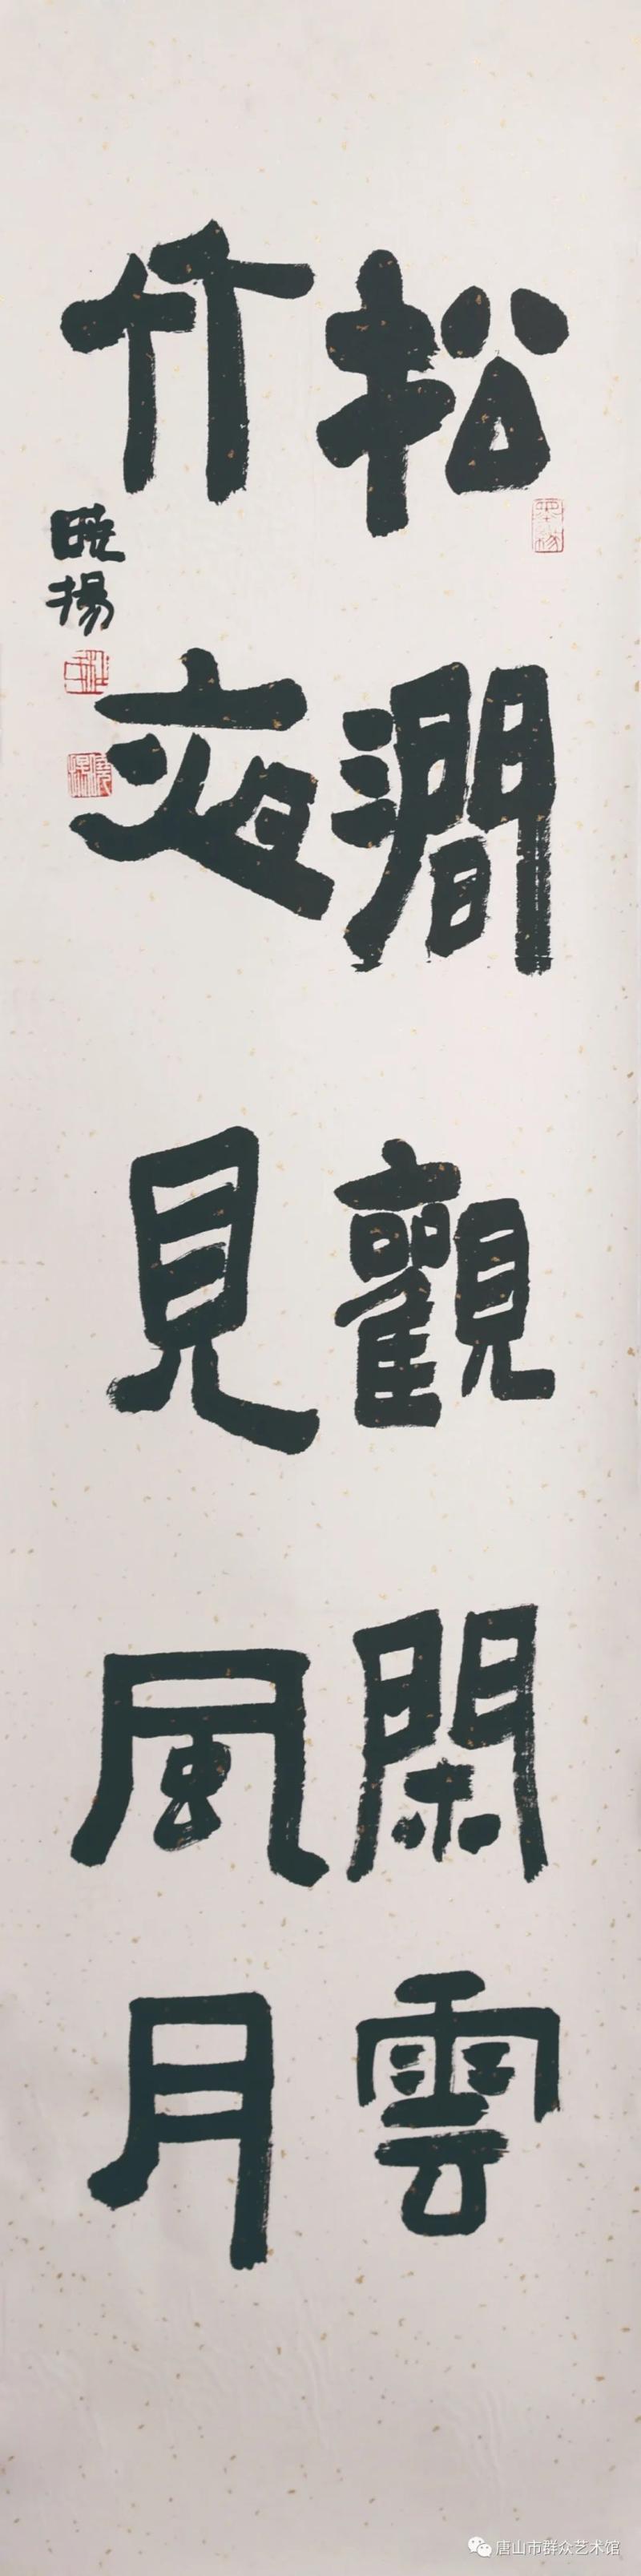 松澗觀閑雲
竹夜見風月
暁揚
唐山市群众艺术馆